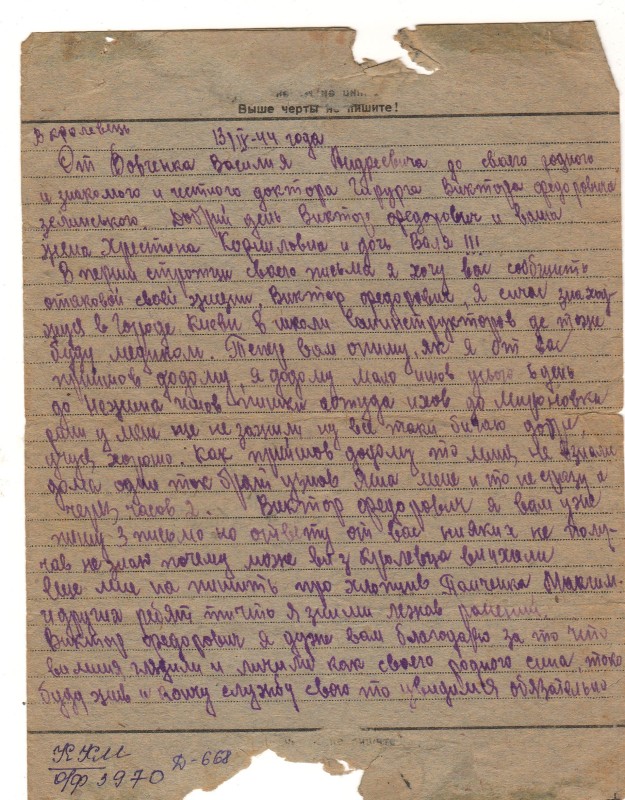 Выше черты не пишите!
В кролевець 13/IX-44 года
От Вовченка Василия Андреевича до своего родного
и знакомого и честного доктора Хирурга Виктора федоровича
зелинського. Добрий день Виктор федорович и ваша
жена Хрестина Корниловна и дочь Валя !!!
В перших строчки своего письма я хочу вас собщить
отаковой своей жизни, Виктор федорович, Я сичас знаход
жуся в городе Киови в школи санинструкторов де тоже
буду медиком. Тепер вам опишу, як я от вас
прийшов додому, я додому мало ишов усього 6 день
до Нежина ишов пишки автуда ихов до Мироновки
рани у мене ще не зажили ну все таки бигаю добре
учусь хорошо. Как прийшов додому то мине не взнали
дома один ток брат узнов Яша мене и то не сразу а
через часов 2. Виктор федорович я вам уже
пишу 3 письмо но ответу от вас нияких не полу-
чав не знаю почему може ви з Кролевца виихали
Еще мне на пишить про хлопцив Панченка Максим.
и других ребят ти что я зними лежав ранений.
Виктор федорович я дуже вам благодарю за то что
ви миня глядили и личили как своего родного сина, токо
буду жив и кончу службу свого то увидимся обязательно
ККМ
О/ф 3970 Д-668